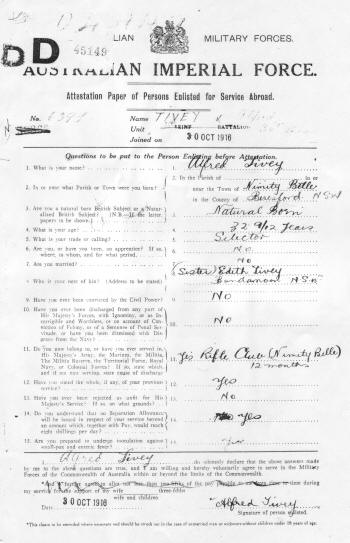 D
45149
LIAN MILITARY FORCES.
AUSTRALIAN IMPERIAL FORCE.
Attestation Paper of Persons Enlisted for Service Abroad.
No. Name TIVEY
Unit BATTALION
Joined on 30 OCT 1916
Questions to be put to the Person Enlisting before Attestation.
1. What is your name? 1. Alfred Tivey
2. In or near what Parish or Town were you born? 2. In the Parish of in or
near the Town of Nimity Belle
in the County of Beresford N S W
3. Are you a natural born British Subject or a Natu-
ralized British Subject? (N.B.—If the latter,
papers to be shown.) 3. Natural Born
4. What is your age? 4. 32 9/12 Years
5. What is your trade or calling? 5. Selector
6. Are you, or have you been, an apprentice? If so,
where, to whom, and for what period. 6. No
7. Are you married? 7. No
8. Who is your next of kin? (Address to be stated) 8. (Sister) Edith Tivey
N S W
9. Have you ever been convicted by the Civil Power? 9. No
10. Have you ever been discharged from any part of
His Majesty's Forces, with Ignominy, or as In-
corrigible and Worthless, or on account of Con-
viction of Felony, or of a Sentence of Penal Ser-
vitude, or have you been dismissed with Dis-
grace from the Navy? 10. No
11. Do you now belong to, or have you ever served in,
His Majesty's Army, the Marines, the Militia,
the Militia Reserve, the Territorial Force, Royal
Navy, or Colonial Forces? If so, state which,
and if not now serving, state cause of discharge 11. Yes Rifle Club (Nimity Belle)
12 months
12. Have you stated the whole, if any, of your previous
service? 12. Yes
13. Have you ever been rejected as unfit for His
Majesty's Service? If so, on what grounds? 13. No
14. Do you understand that no Separation Allowance
will be issued in respect of your service beyond
an amount which, together with Pay, would reach
eight shillings per day? 14. Yes
15. Are you prepared to undergo inoculation against
small-pox and enteric fever? 15. Yes
I, Alfred Tivey do solemnly declare that the above answers made
by me to the above questions are true, and I am willing and hereby voluntarily agree to serve in the Military
Forces of the Commonwealth of Australia within or beyond the limits of the Commonwealth.
my service for the support of my wife
wife and children
Date 30 OCT 1916 Alfred Tivey
Signature of person enlisted.